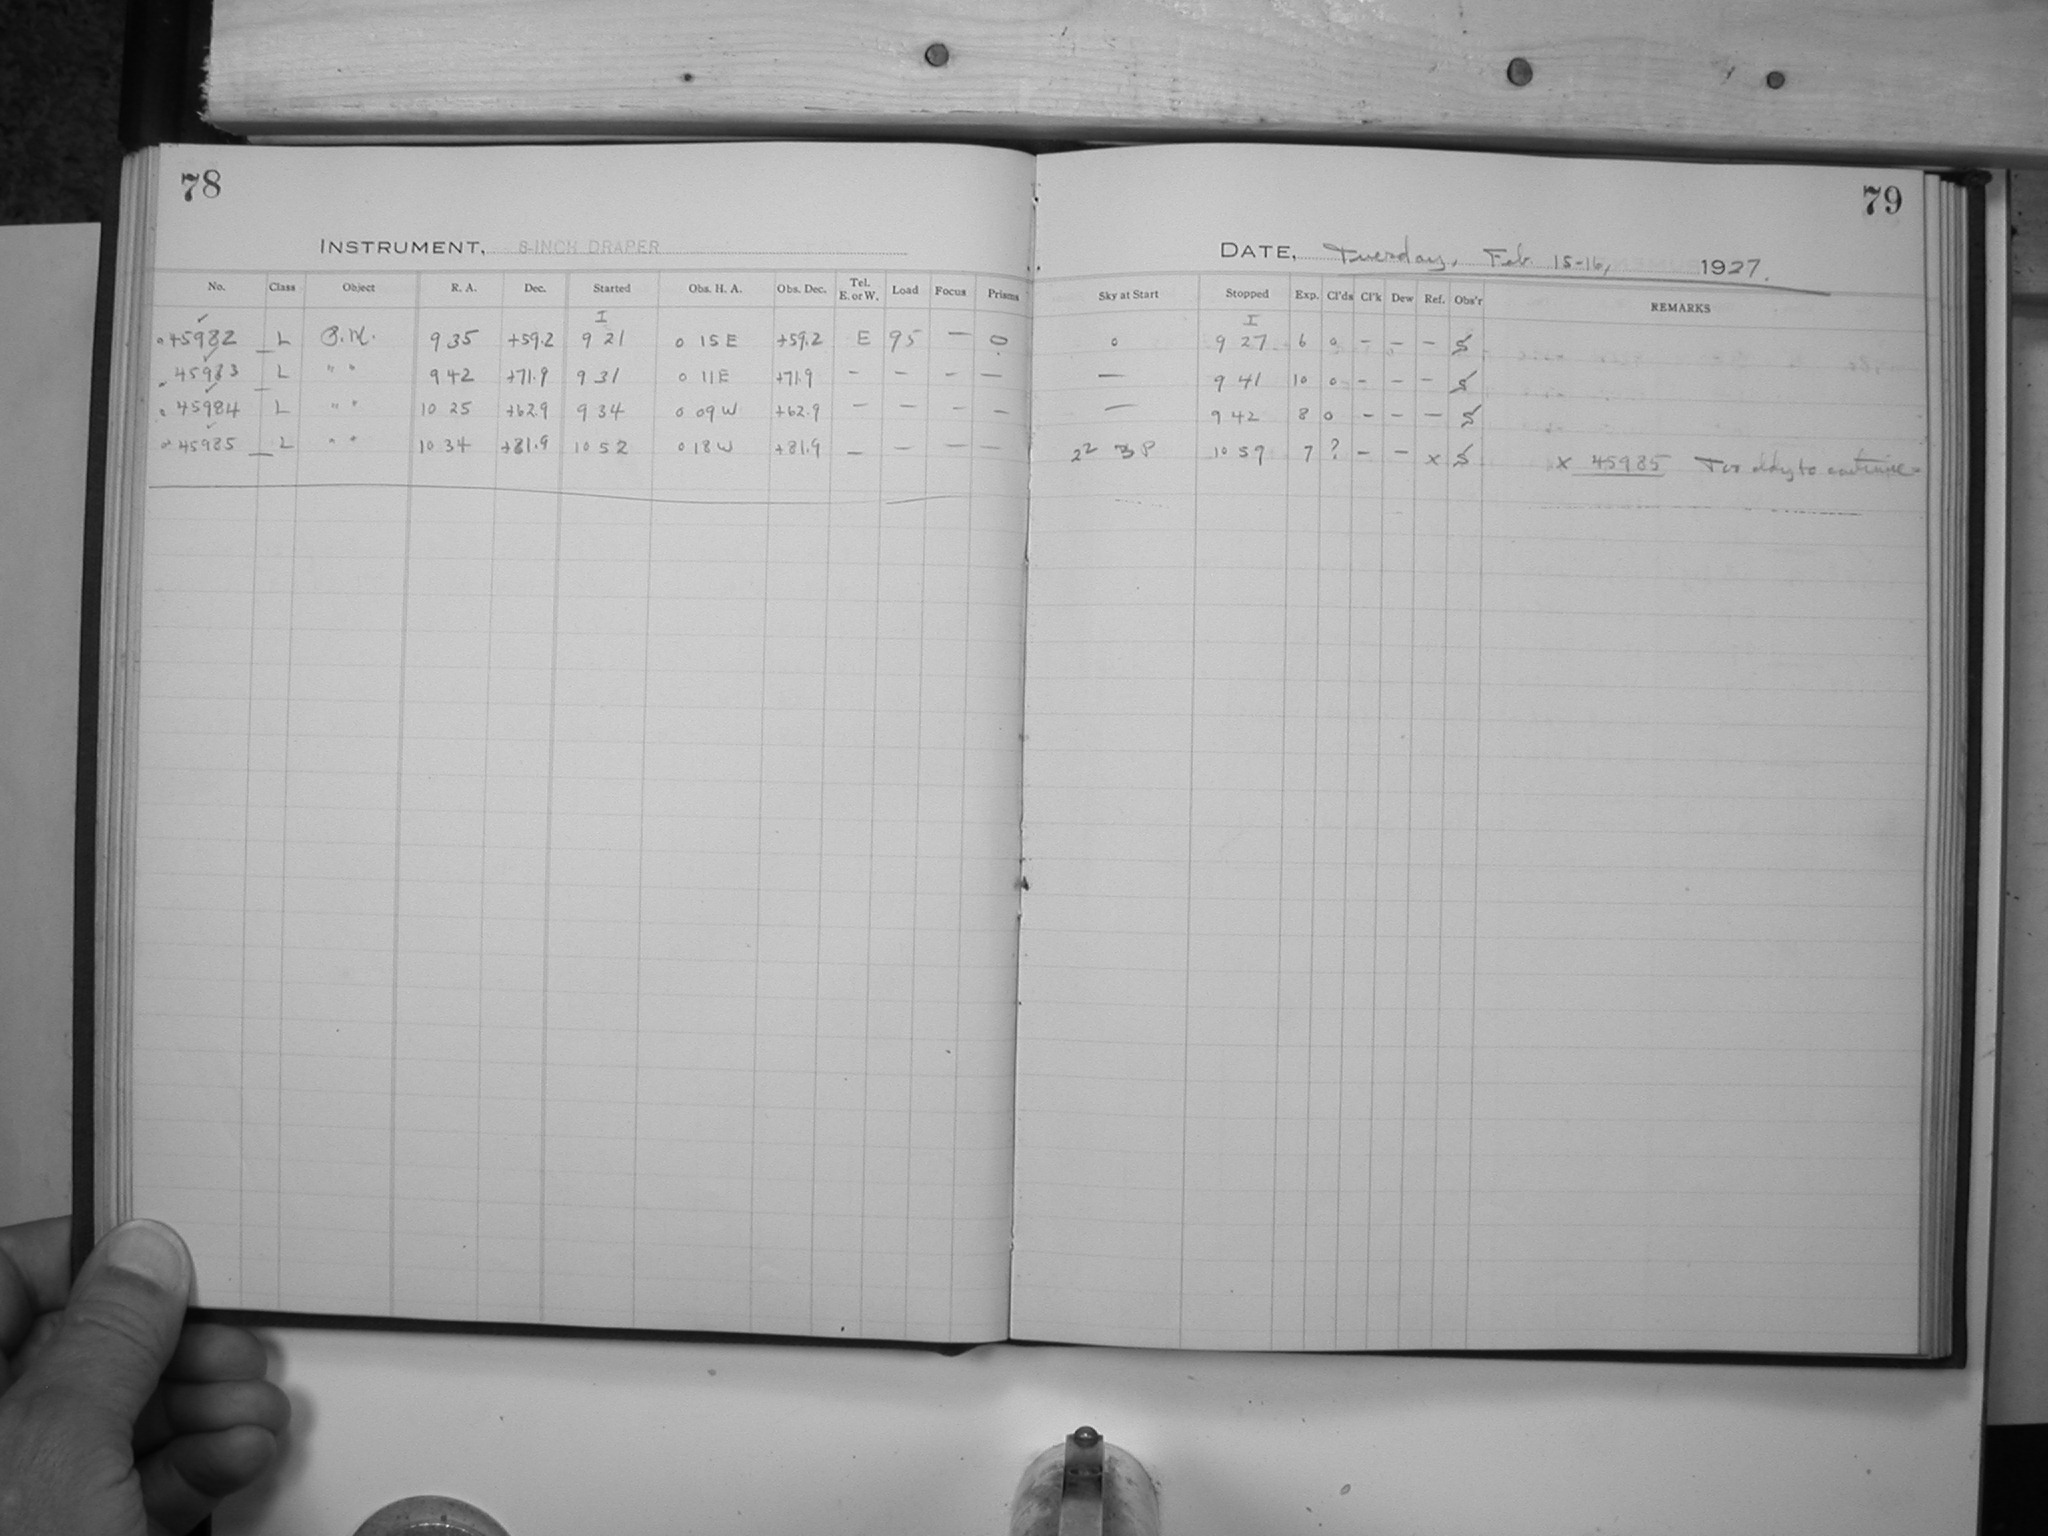 78
INSTRUMENT, 8-INCH DRAPER
No. Class Object R. A. Dec. Started Obs. H. A. Obs. Dec. Tel. E. or W. Load Focus Prisms
I
45982 L B.M. 9 35 +59.2 9 21 0 15 E +59.2 E 95 — 0
45983 L " " 9 42 +71.9 9 31 0 11 E +71.9 — — — —
45984 L " " 10 25 +62.9 9 34 0 09 W +62.9 — — — —
45985 L " " 10 34 +81.9 10 52 0 18 W +81.9 — — — —
79
DATE, Tuesday, Feb. 15-16, 1927.
Sky at Start Stopped Exp. Cl'ds Cl'k Dew Ref. Obs'r REMARKS
I
0 9 27 6 0 — — — S
— 9 41 10 0 — — — S
— 9 42 8 0 — — — S
22 3 P 10 59 7 ? — — x S x 45985 Too to continue